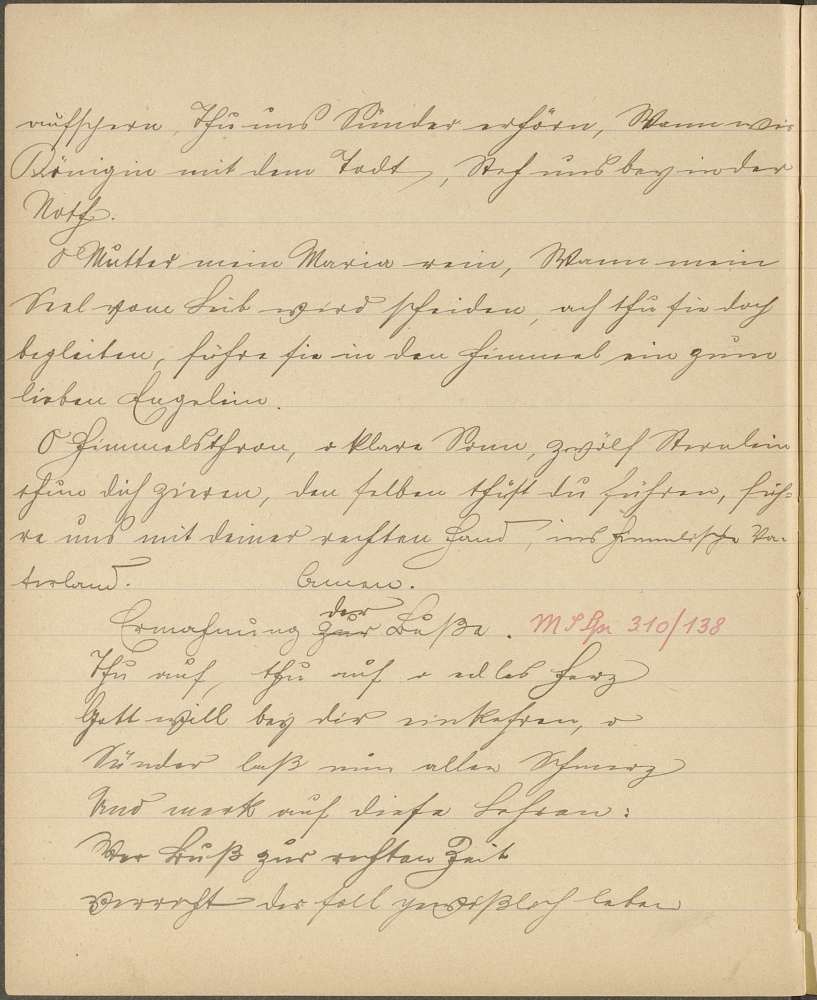 aufschern, Thu uns Sünder erhörn, Wann wir
Königin mit dem Todt, Steh uns bey in der
Noth.
O Mutter mein Maria rein, Wann mein
Seel vom Leib wird scheiden, ach thu sie doch
begleiten, führe sie in den Himmel ein zum
lieben Engelein.
O Himmelsthron, o klare Sonn, zwölf Sternlein
thun dich zieren, den selben thust du führen, füh=
re uns mit deiner rechten Hand, ins himmlische Va=
terland. Amen.
Ermahnung zur der Buße. 310/138
Thu auf, thu auf o edles Herz
Gott will bey dir einkehren, o
Sünder laß nun allen Schmerz
Und merk auf diese Lehren:
Wer Buß zur rechten Zeit
verricht der soll leben